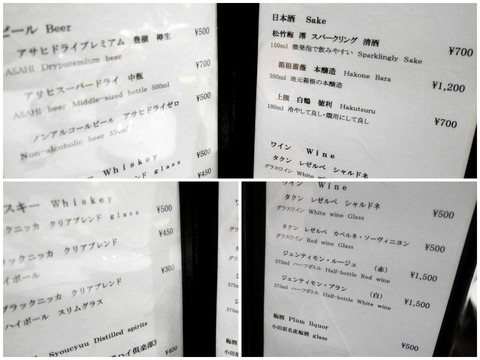 ビール Beer
アサヒドライプレミアム 豊穣 樽生
ASAHI Drypuremium beer
¥500
アサヒスーパードライ 中瓶
ASAHI beer Middle-sized bottle 500ml
¥700
ノンアルコールビール アサヒドライゼロ
Non-alcoholic beer
¥500
Whiskey
glass
¥450
日本酒 Sake
松竹梅 澪 スパークリング 清酒
150ml 微発泡で飲みやすい Sparklingly Sake
¥700
箱根薔薇 本醸造 Hakone Bara
300ml 地元箱根の本醸造
¥1,200
上撰 白鶴 徳利 Hakutsuru
180ml 冷やして良し・燗用にして良し
¥700
ワイン Wine
タクン レゼルベ シャルドネ
グラスワイン White wine Glass
スキー Whiskey
ラックニッカ クリアブレンド glass
¥500
ラックニッカ クリアブレンド
イボール
¥450
ブラックニッカ クリアブレンド
ハイボール スリムグラス
¥300
Syoucyuu Distilled spirits
ハイ倶楽部》
¥400
ワイン Wine
タクン レゼルベ シャルドネ
グラスワイン White wine Glass
¥500
タクン レゼルベ カベルネ・ソーヴィニヨン
グラスワイン Red wine Glass
¥500
ジェンティモン・ルージュ (赤)
375ml ハーフボトル Half-bottle Red wine
¥1,500
ジェンティモン・ブラン (白)
375ml ハーフボトル Half-bottle White wine
¥1,500
梅酒 Plum liquor
小田原名産梅酒 glass
¥500